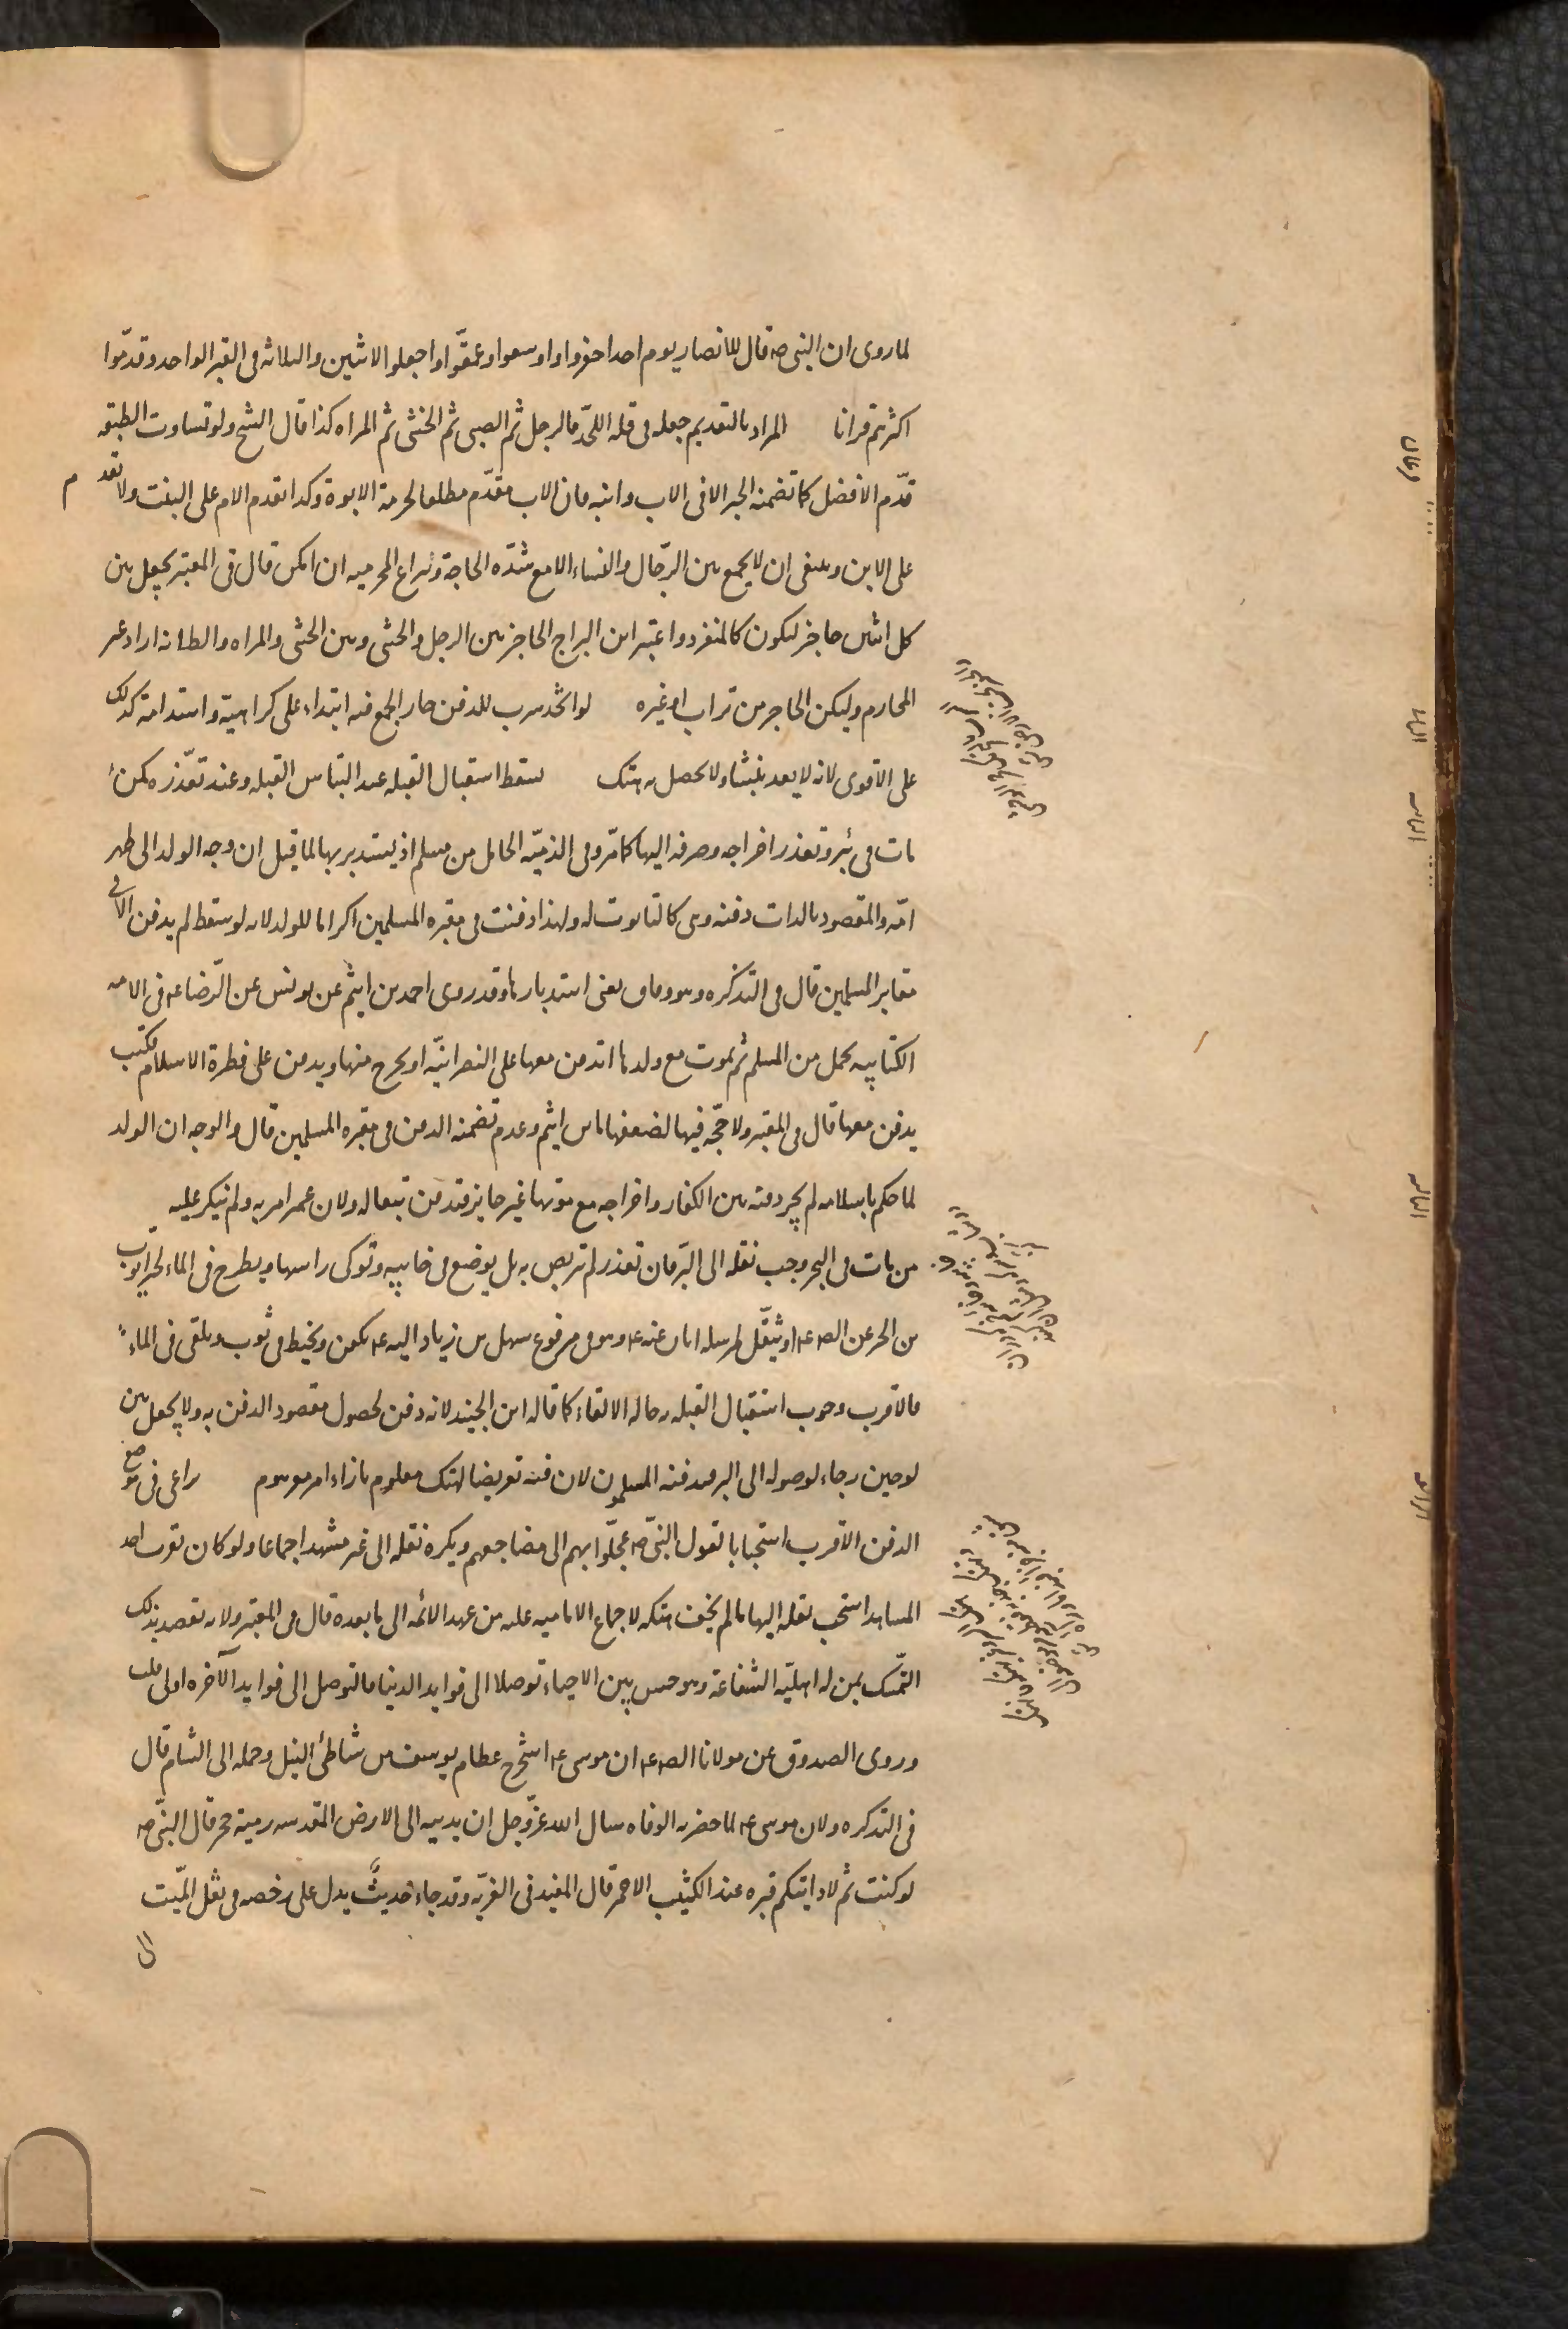 لما روى ان النبى صم قال للانصار يوم احد احفروا واوسعوا وعمّقوا واجعلوا الاثنين والثلاثه فى القبر الواحد وقدّموا
اكثرهم قرانا المراد بالتقديم جعله فى قبله اللحد فالرجل ثم الصبى ثم الخنثى ثم المراه كذا قال الشيخ ولو تساوت الطبقه
قدّم الافضل كما تضمنه الخبر الا فى الاب وابنه فان الاب مقدّم مطلقا لحرمة الابوة وكذا تقدم الام على البنت ولا تقدم
على الابن وينبغى ان لا يجمع بين الرّجال والنساء الا مع شدّه الحاجة وتراعى المحرميه ان امكن قال فى المعتبر يجعل بين
كل اثنين حاجز ليكون كالمنفرد واعتبر ابن البراج الحاجز بين الرجل والخنثى وبين الخنثى والمراه والظاهر انه اراد غير
المحارم وليكن الحاجز من تراب او غيره لو اتخذ سرب للدفن جاز الجمع فيه ابتداء على كراهية واستدامته كذلك
على الاقوى لانه لا يعد نبشا ولا يحصل به هتك يسقط استقبال القبله عند التباس القبله وعند تعذّره كمن
مات فى بئر وتعذر اخراجه وصرفه اليها كما مرّ وفى الذميّه الحامل من مسلم اذ يستدبر بها لما قيل ان وجه الولد الى ظهر
امّه والمقصود بالذات دفنه وهى كالتابوت له ولهذا دفنت فى مقبره المسلمين اكراما للولد لانه لو سقط لم يدفن الا فى
مقابر المسلمين قال فى التذكره وهو وفاق يعنى استدبارها وقد روى احمد بن اشيم عن يونس عن الرّضا عم فى الامه
الكتابيه تحمل من المسلم ثم تموت مع ولدها اتدفن معها على النصرانيّه او يخرج منها ويدفن على فطرة الاسلام فكتب
يدفن معها قال فى المعتبر ولا حجّه فيها لضعفها بابن اشيم وعدم تضمنه الدفن فى مقبره المسلمين قال والوجه ان الولد
لما حكم باسلامه لم يجز دفنه بين الكفار واخراجه مع موتها غير جايز فتدفن تبعا له ولان عمر امر به ولم ينكر عليه
من مات فى البحر وجب نقله الى البّر فان تعذر لم يتربص به بل يوضع فى خابيه وتوكى راسها ويطرح فى الماء لخبر ايوب
بن الحر عن الص عم او يثقّل لمرسله ابان عنه عم وهو فى مرفوع سهل بن زياد اليه عم يكفن ويحنط فى ثوب ويلقى فى الماء
فالاقرب وجوب استقبال القبله به حاله الالقاء كما قاله ابن الجنيد لانه دفن لحصول مقصود الدفن به ولا يجعل بين
لوحين رجاء لوصوله الى البر فيدفنه المسلمون لان فيه تعريضا لهتك معلوم بازاء امر موهوم يراعى فى موضع
الدفن الاقرب استحبابا لقول النبىّ صم عجّلوا بهم الى مضاجعهم ويكره نقله الى غير مشهد اجماعا ولو كان بقرب احد
المشاهد استحب نقله اليها ما لم يخف هتكه لاجماع الاماميه عليه من عهد الائمه الى ما بعده قال فى المعتبر ولانه يقصد بذلك
التمّسك بمن له اهليّه الشفاعة وهو حسن بين الاحياء توصلا الى فوايد الدنيا فالتوصل الى فوايد الآخره اولى قلت
وروى الصدوق عن مولانا الص عم ان موسى عم استخرج عظام يوسف من شاطئ النيل وحمله الى الشام قال
فى التذكره ولان موسى عم لما حضرته الوفاه سال الله عزّ وجل ان يدنيه الى الارض المقدسه رمية حجر قال النبىّ صم
لو كنت ثم لاريتكم قبره عند الكثيب الاحمر قال المفيد فى الغريّه وقد جاء حديثٌ يدل على رخصه فى نقل الميّت
الى